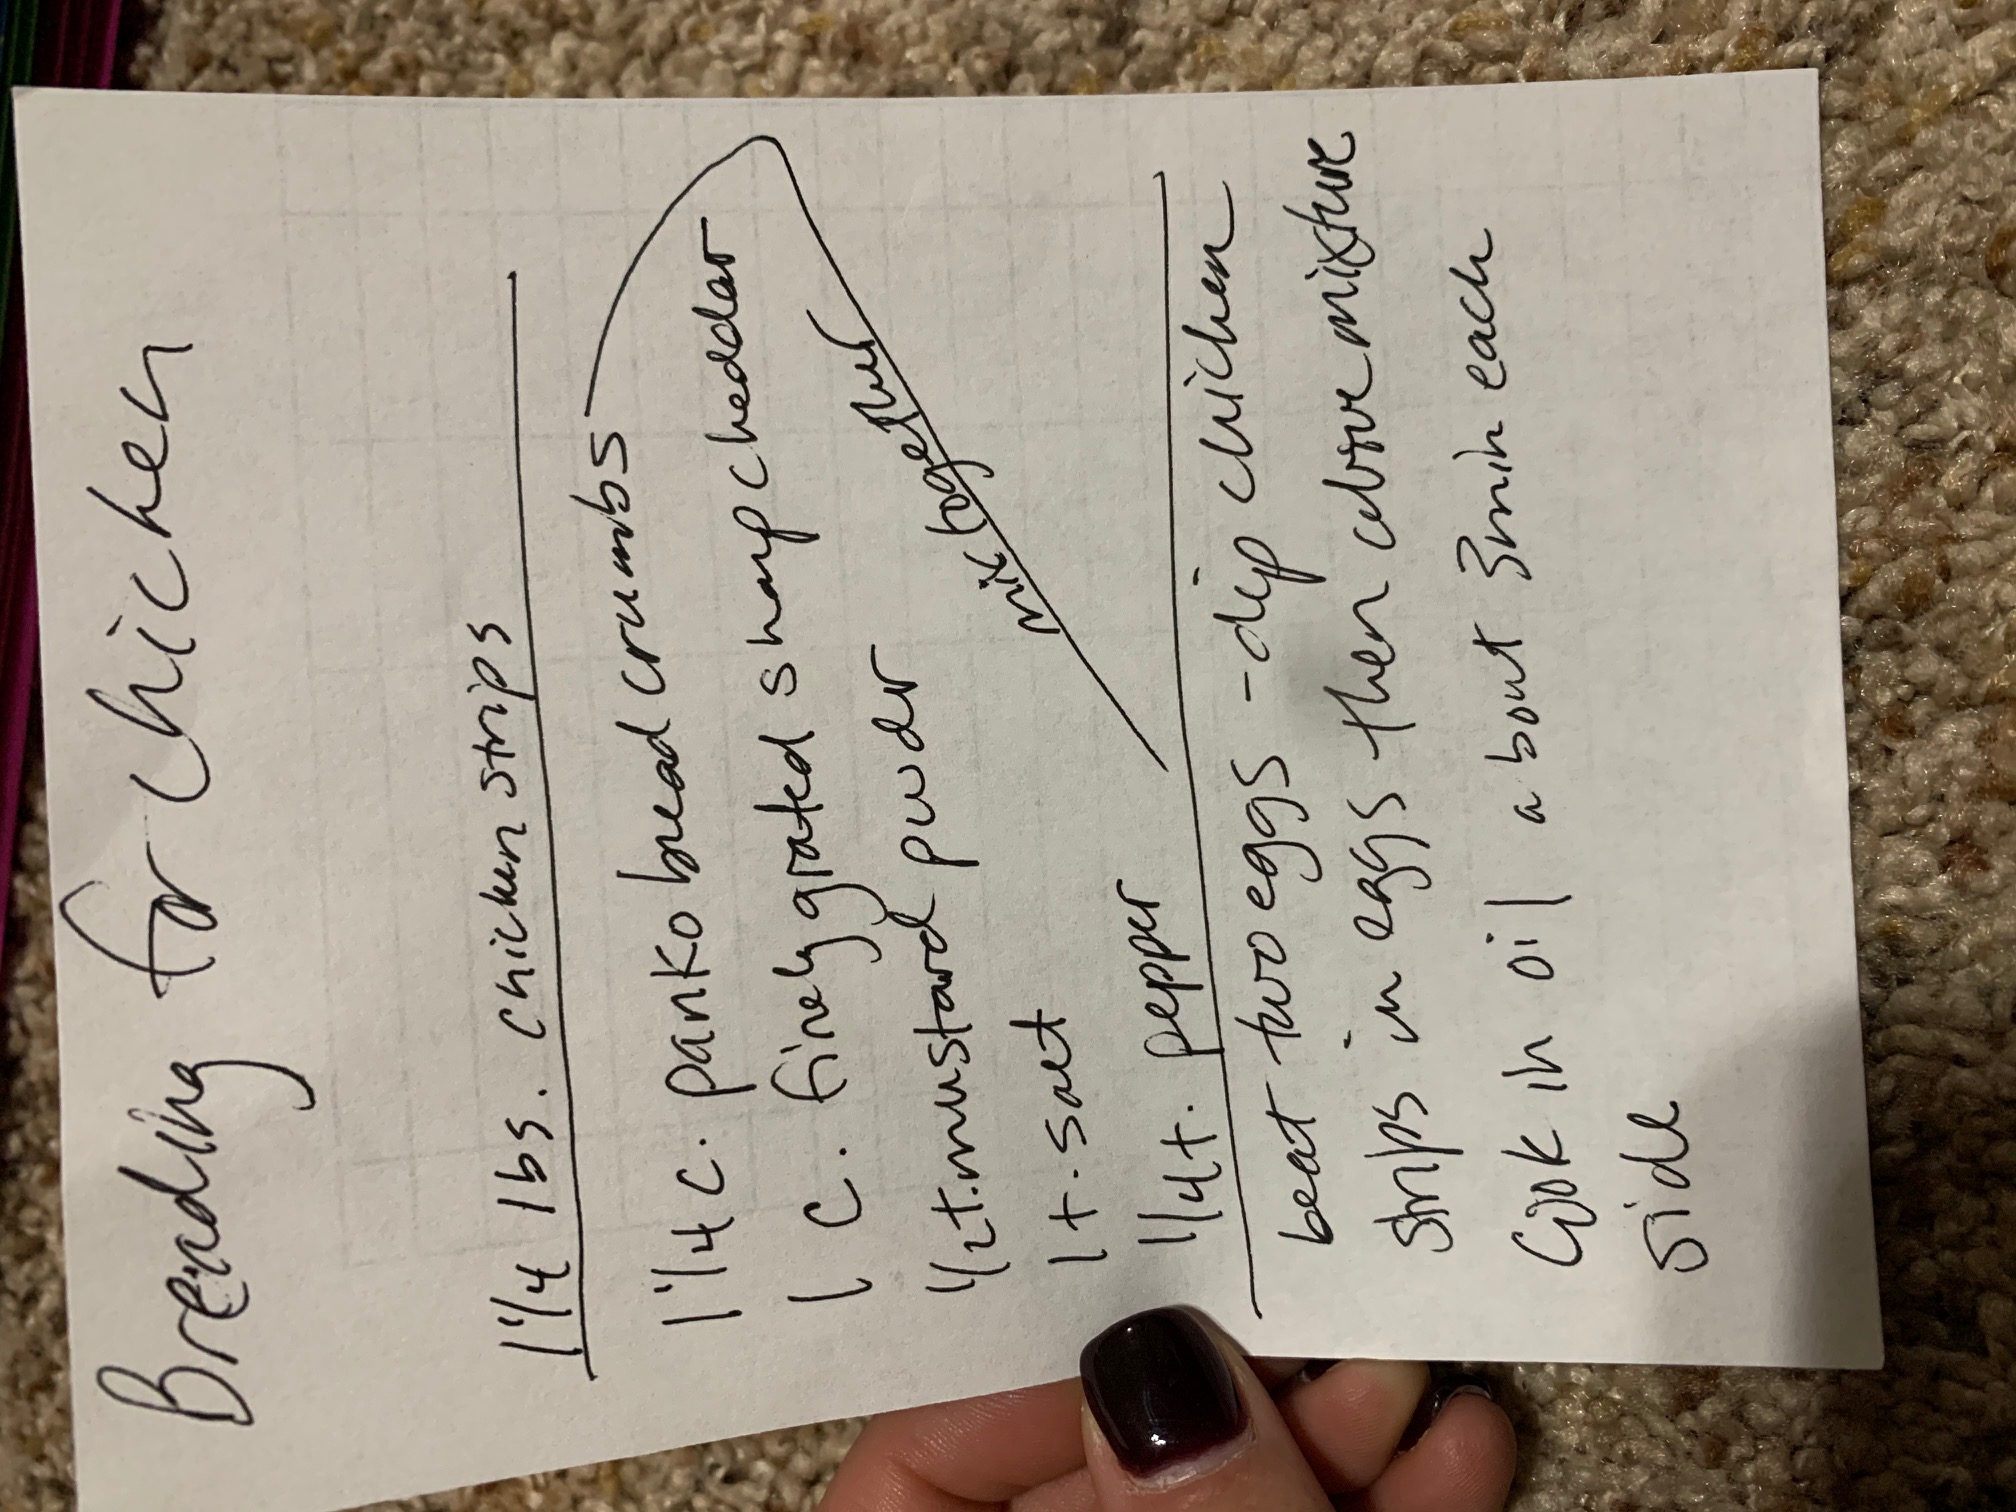 Breading for chicken
1 1/4 lbs. chicken strips
1 1/4 c. panko bread crumbs
1 c. finely grated sharp cheddar
1/2 t. mustard pwdr
1 t. salt
1/4 t. pepper
mix together
beat two eggs - dip chicken
strips in eggs then above mixture
Cook in oil about 3min each
side